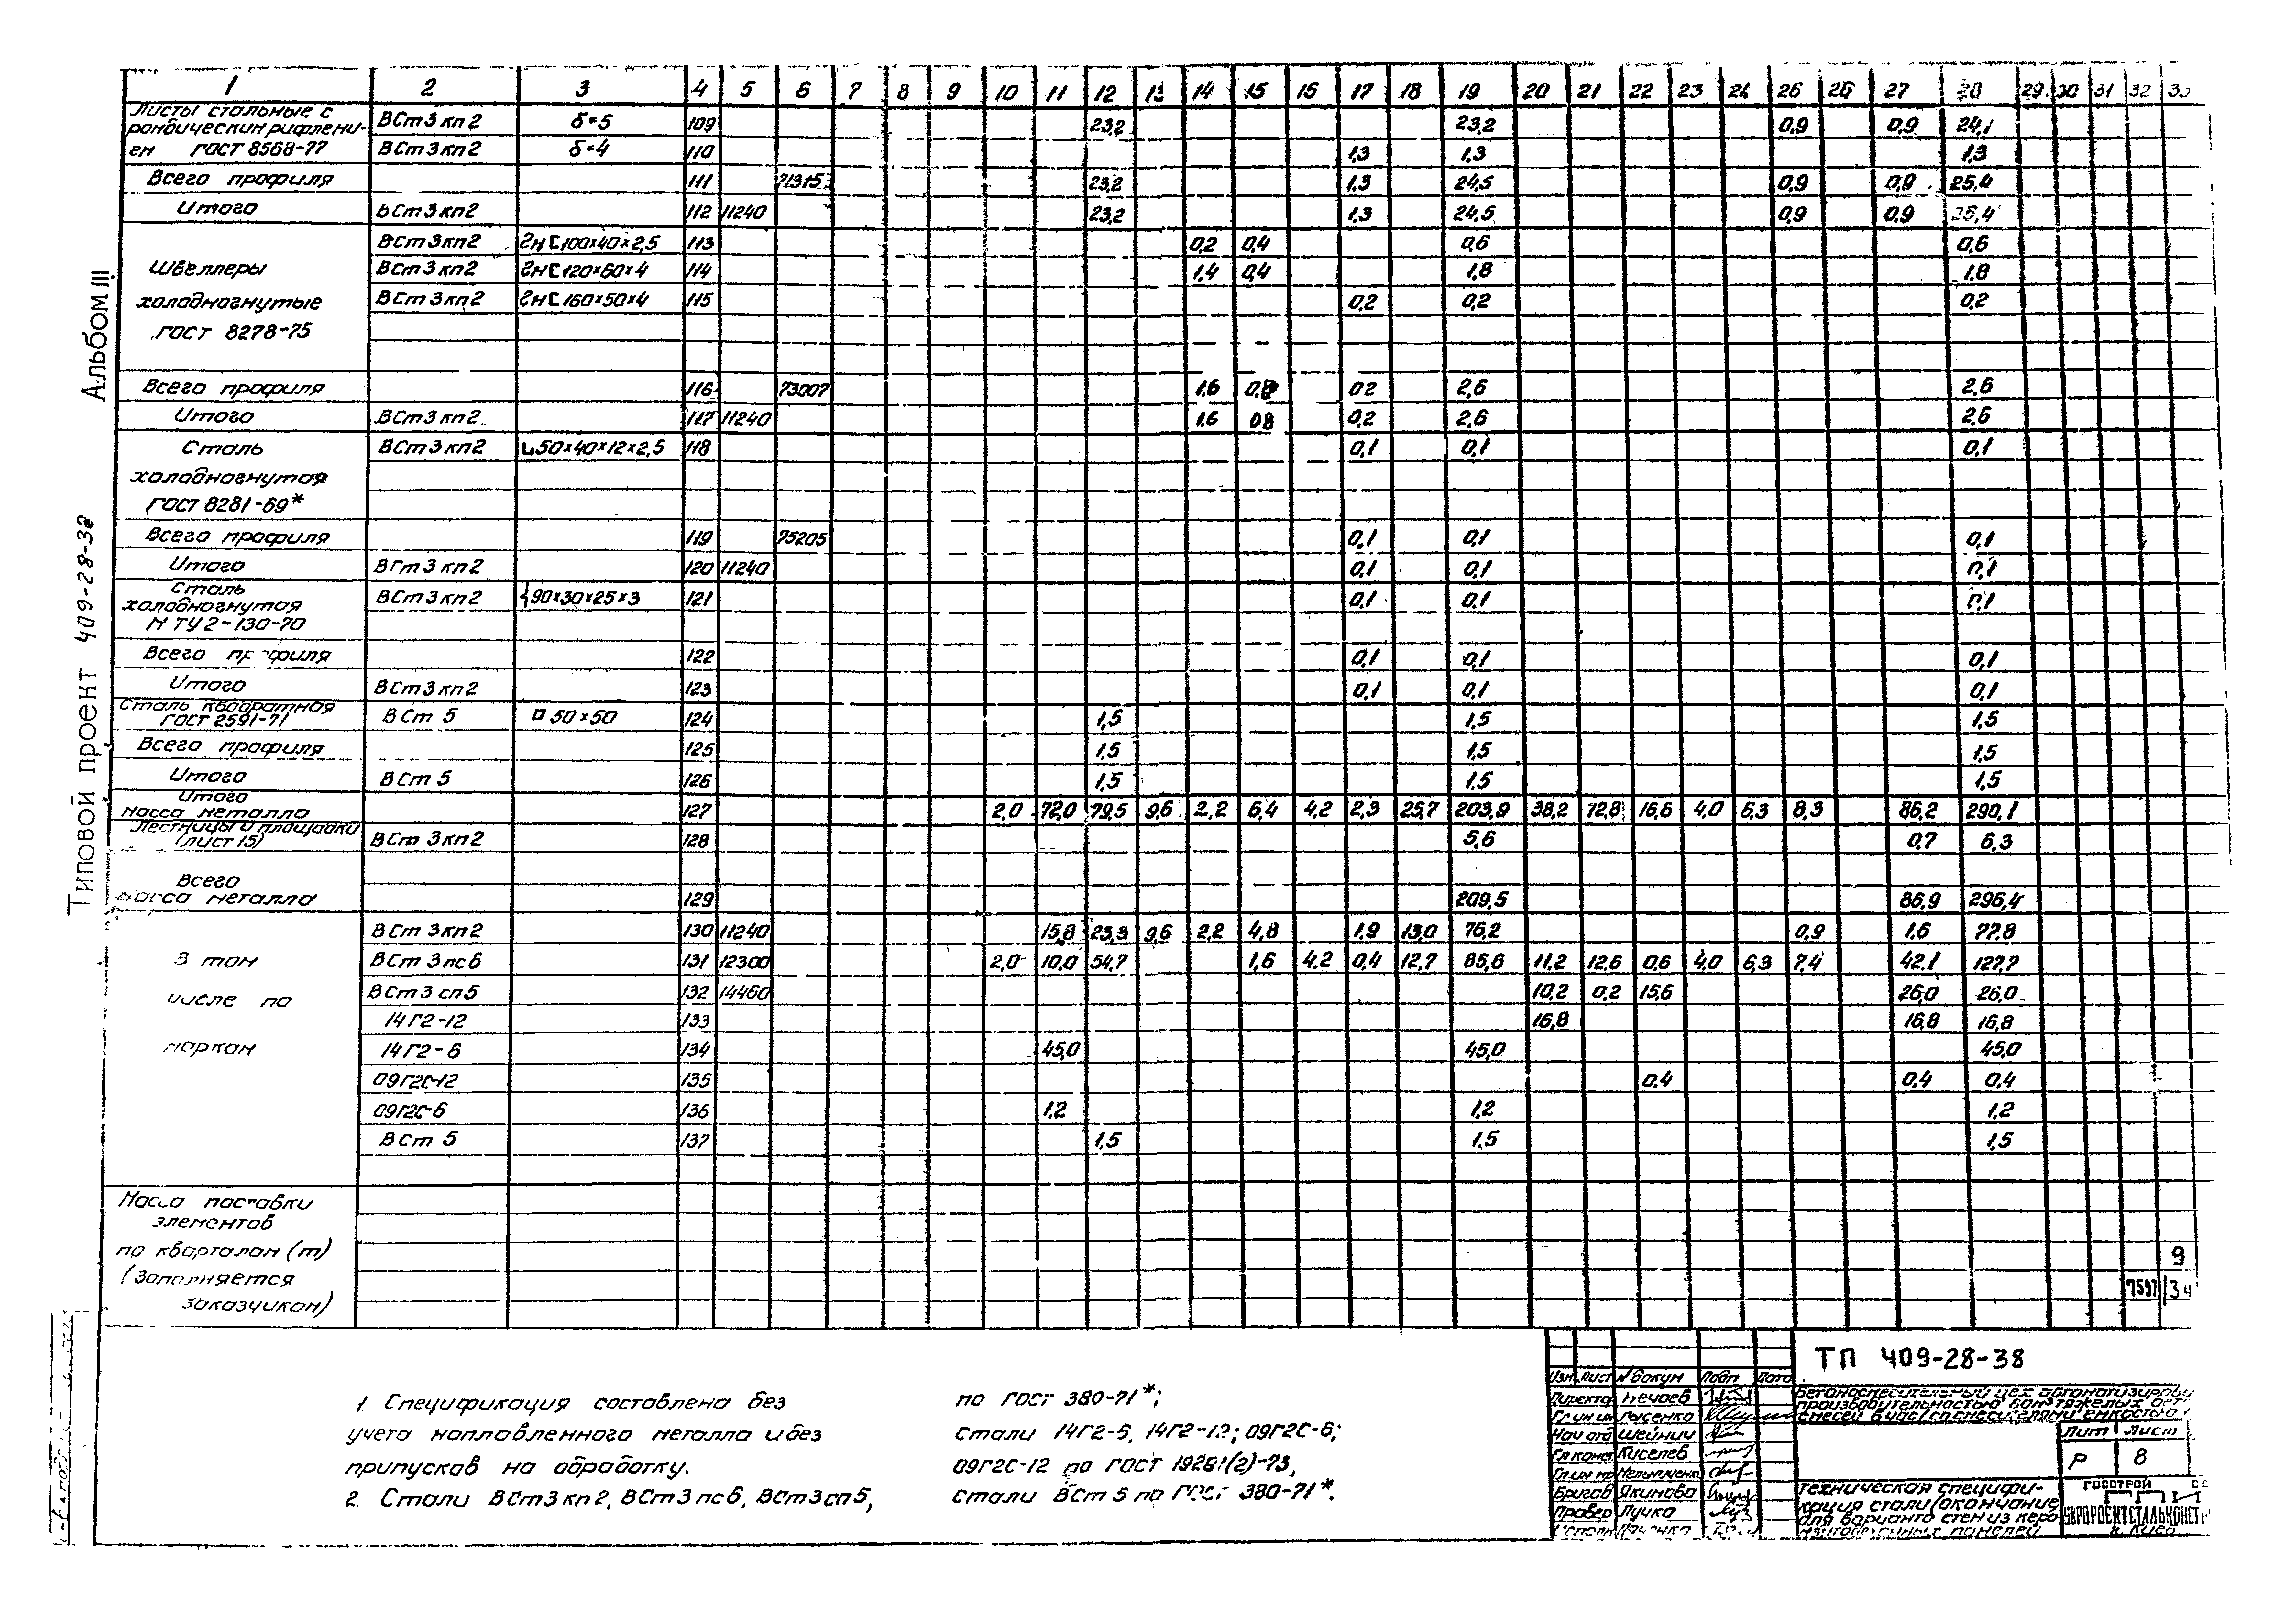 1 2 3 4 5 6 7 8 9 10 11 12 13 14 15 16 17 18 19 20 21 22 23 24 25 26 27 28 29 30 31 32 33
Листы стальные с
ромбическим рифлени-
ем ГОСТ 8568-77
ВСт3кп2 δ=5 109 23,2 23,2 0,9 0,9 24,1
ВСт3кп2 δ=4 110 1,3 1,3 1,3
Всего профиля 111 71315 23,2 1,3 24,5 0,9 0,9 25,4
Итого ВСт3кп2 112 11240 23,2 1,3 24,5 0,9 0,9 25,4
Швеллеры
холодногнутые
ГОСТ 8278-75
ВСт3кп2 ГН[100×40×2,5 113 0,2 0,4 0,6 0,6
ВСт3кп2 ГН[120×60×4 114 1,4 0,4 1,8 1,8
ВСт3кп2 ГН[160×50×4 115 0,2 0,2 0,2
Всего профиля 116 73007 1,6 0,8 0,2 2,6 2,6
Итого ВСт3кп2 117 11240 1,6 0,8 0,2 2,6 2,6
Сталь
холодногнутая
ГОСТ 8281-69*
ВСт3кп2 50×40×12×2,5 118 0,1 0,1 0,1
Всего профиля 119 75205 0,1 0,1 0,1
Итого ВСт3кп2 120 11240 0,1 0,1 0,1
Сталь
холодногнутая
МТУ2-130-70
ВСт3кп2 90×30×25×3 121 0,1 0,1 0,1
Всего профиля 122 0,1 0,1 0,1
Итого ВСт3кп2 123 0,1 0,1 0,1
Сталь квадратная
ГОСТ 2591-71
ВСт5 □50×50 124 1,5 1,5 1,5
Всего профиля 125 1,5 1,5 1,5
Итого ВСт5 126 1,5 1,5 1,5
Итого
масса металла 127 2,0 72,0 79,5 9,6 2,2 6,4 4,2 2,3 25,7 203,9 38,2 12,8 16,6 4,0 6,3 8,3 86,2 290,1
Лестницы и площадки
(лист 15) ВСт3кп2 128 5,6 0,7 6,3
Всего
масса металла 129 209,5 86,9 296,4
В том
числе по
маркам
ВСт3кп2 130 11240 15,8 23,3 9,6 2,2 4,8 1,9 13,0 76,2 0,9 1,6 77,8
ВСт3пс6 131 12300 2,0 10,0 54,7 1,6 4,2 0,4 12,7 85,6 11,2 12,6 0,6 4,0 6,3 7,4 42,1 127,7
ВСт3сп5 132 14460 10,2 0,2 15,6 26,0 26,0
14Г2-12 133 16,8 16,8 16,8
14Г2-6 134 45,0 45,0 45,0
09Г2С-12 135 0,4 0,4 0,4
09Г2С-6 136 1,2 1,2 1,2
ВСт5 137 1,5 1,5 1,5
Масса поставки
элементов
по кварталам (т)
(Заполняется
заказчиком)
9
7597 /3 ч
Альбом III
Типовой проект 409-28-38
1. Спецификация составлена без
учета наплавленного металла и без
припусков на обработку.
2. Стали ВСт3кп2, ВСт3пс6, ВСт3сп5,
по ГОСТ 380-71*;
стали 14Г2-6, 14Г2-12; 09Г2С-6;
09Г2С-12 по ГОСТ 19281(2)-73,
стали ВСт5 по ГОСТ 380-71*.
ТП 409-28-38
Изм Лист № докум Подп Дата
Директо Нечаев
Гл инж Лысенко
Нач отд Шейнич
Гл конс Киселев
Гл инж пр
Бригад Якимова
Провер Лучка
Бетоносмесительный цех автоматизиров
производительностью
Лит Лист
Р 8
Техническая специфи-
кация стали (окончание
для варианта стен из кера-
мзитобетонных панелей
ГОССТРОЙ СС
УКРПРОЕКТСТАЛЬКОНСТ
г. Киев